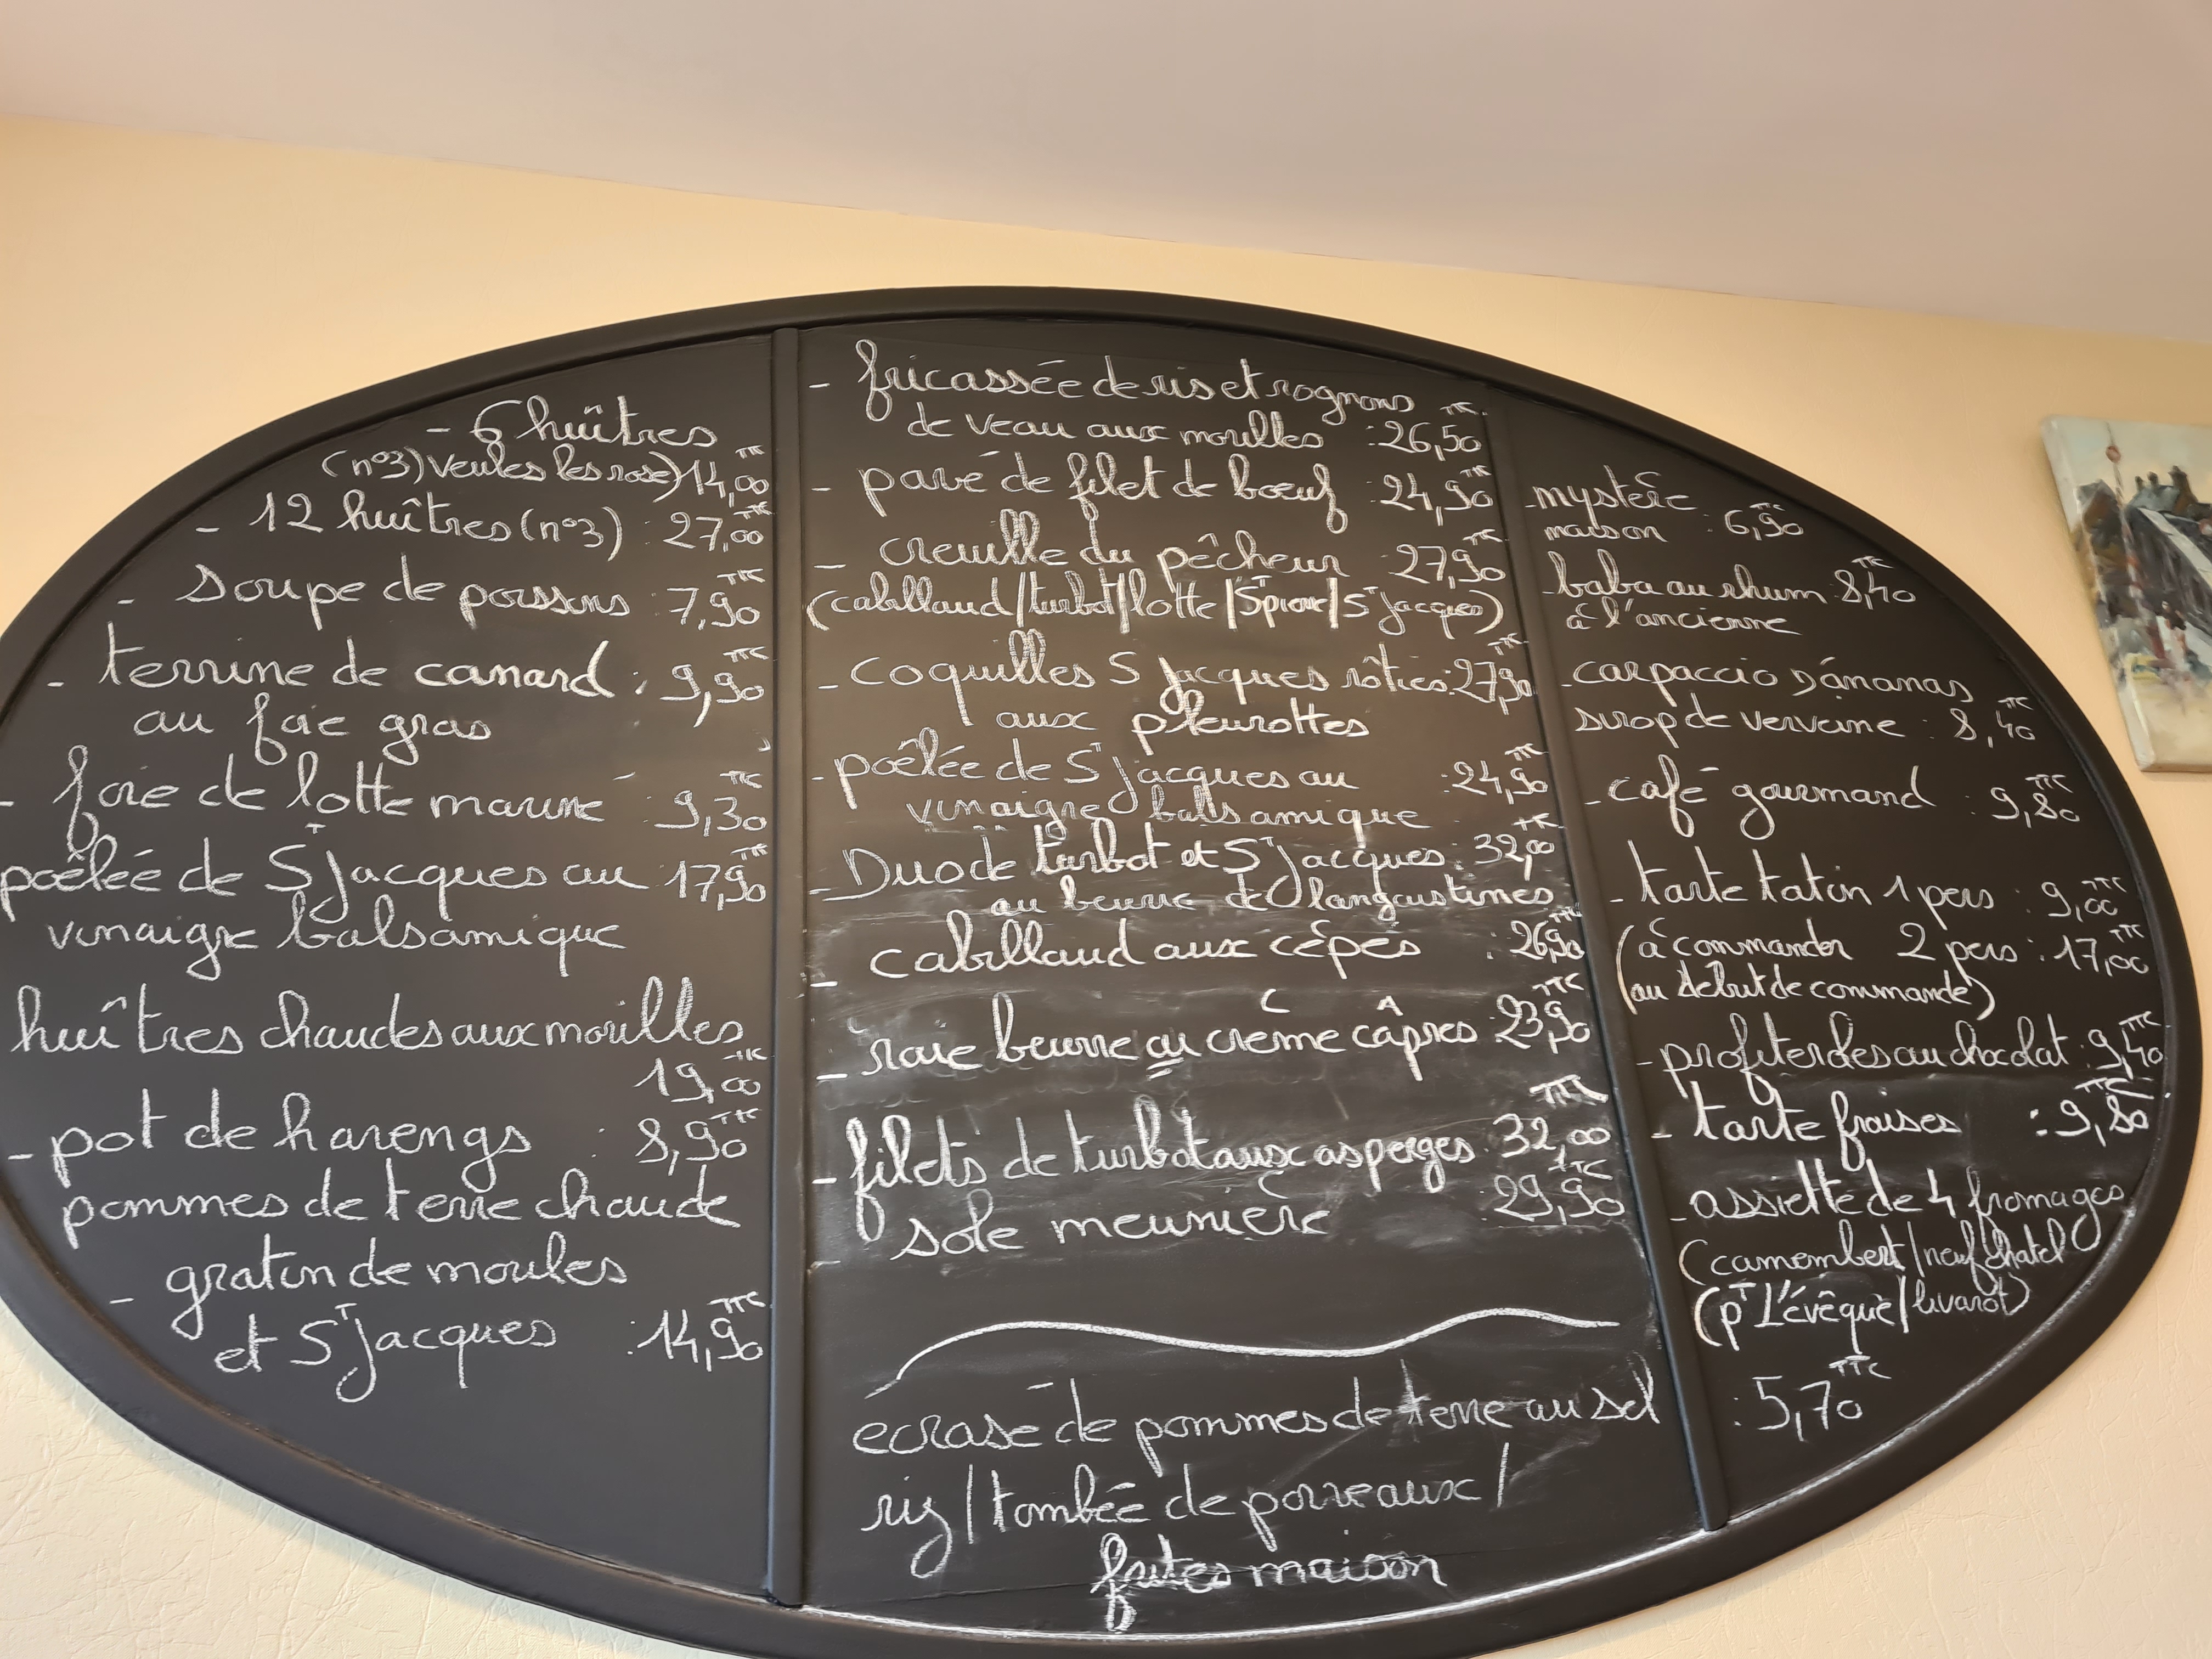 - 6 huîtres
(n°3) veules les rose) 14,00 TTC
- 12 huîtres (n°3) : 27,00 TTC
- soupe de poissons : 7,90 TTC
- terrine de canard : 9,90 TTC
au foie gras
- foie de lotte mariné : 9,30 TTC
poêlée de ST jacques au 17,90 TTC
vinaigre balsamique
huîtres chaudes aux morilles
19,00 TTC
- pot de harengs : 8,90 TTC
pommes de terre chaude
- gratin de moules
et ST jacques : 14,90 TTC
- fricassée de ris et rognons
de veau aux morilles : 26,50 TTC
- pavé de filet de bœuf : 24,90 TTC
- creuille du pêcheur 27,90 TTC
(cabillaud/turbot/lotte/ /ST jacques)
- coquilles S jacques rôties : 27,90 TTC
aux pleurottes
- poêlée de ST jacques au : 24,90 TTC
vinaigre balsamique
- Duo de turbot et ST jacques : 32,00 TTC
au beurre de langoustines
- cabillaud aux cépes : 26,90 TTC
- raie beurre ou crème câpres : 23,90 TTC
- filets de turbot aux asperges : 32,00 TTC
- sole meunière : 29,90 TTC
ecrasé de pommes de terre au sel
riz / tombée de poireaux /
faites maison
- mystère
maison : 6,90 TTC
- baba au rhum : 8,40 TTC
à l'ancienne
- carpaccio D'ananas
sirop de verveine : 8,40 TTC
- café gourmand : 9,80 TTC
- tarte tatin 1 pers : 9,00 TTC
(à commander 2 pers : 17,00 TTC
(au début de commande)
- profiteroles au chocolat : 9,40 TTC
- tarte fraises : 9,80 TTC
- assiette de 4 fromages
(camembert/neufchatel
(pT L'évêque/livarot)
: 5,70 TTC